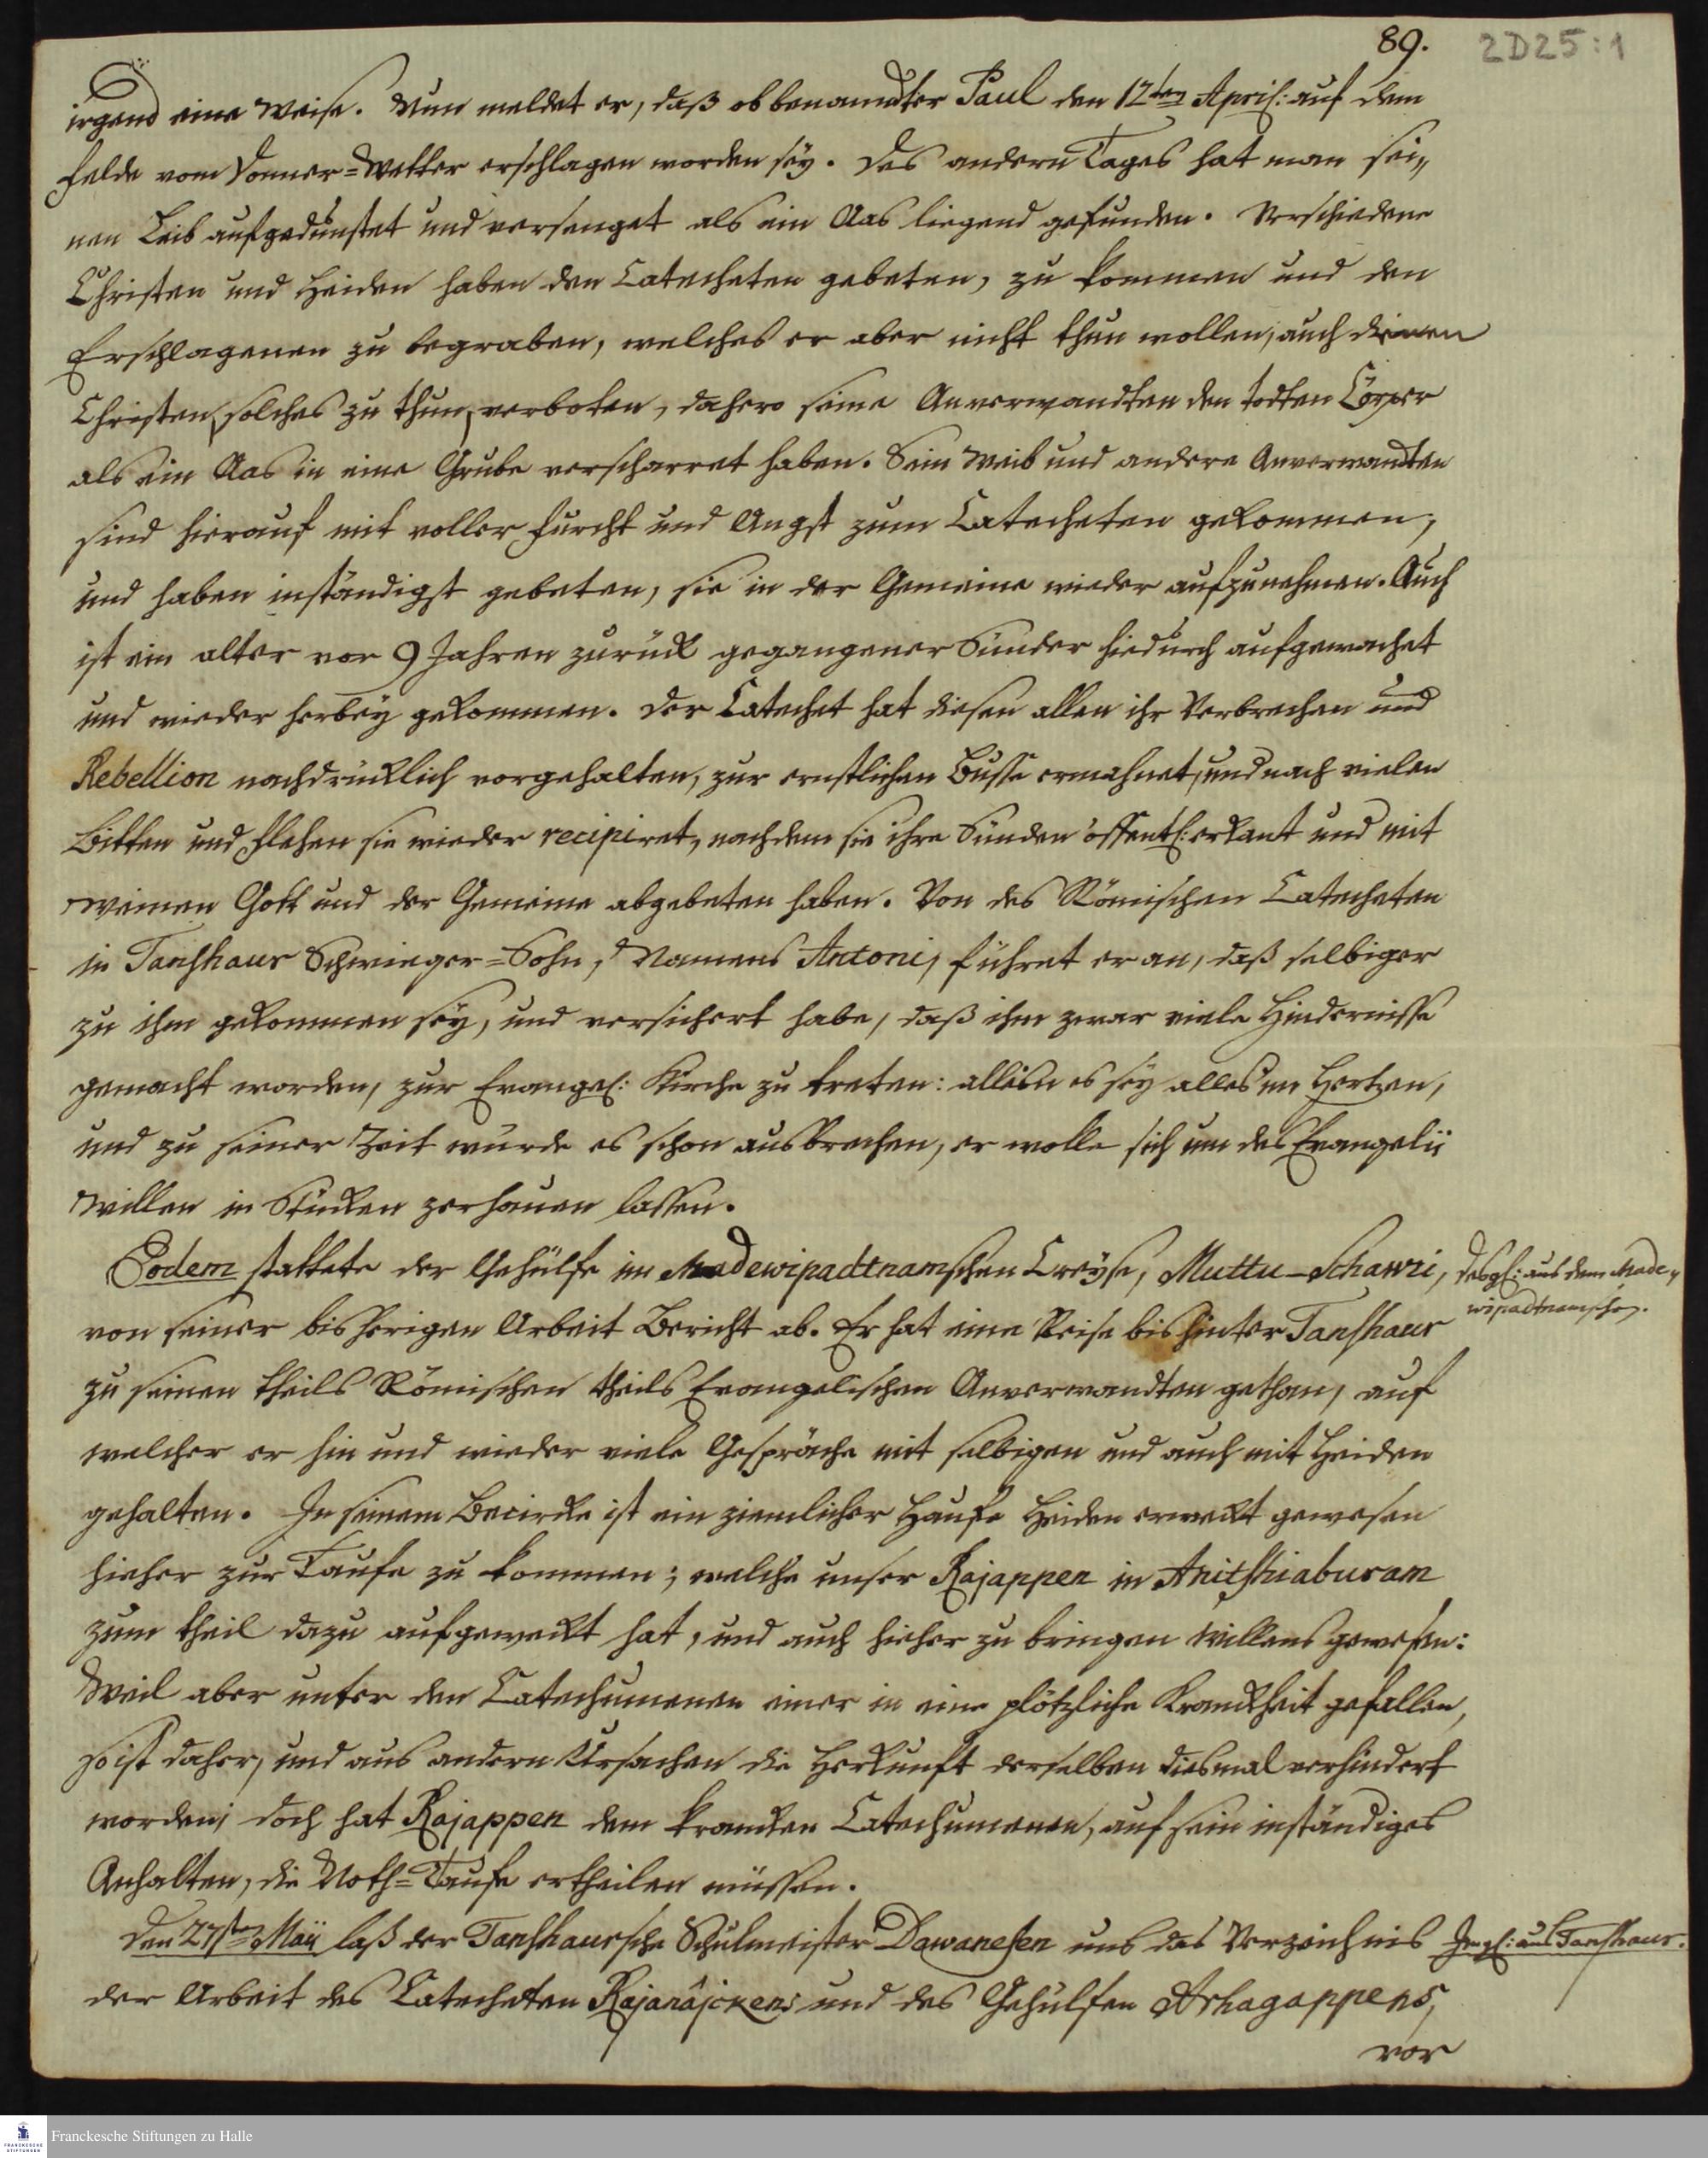 89.
2D25:1
irgend eine Weise. Nun meldet er, daß obbenannter Paul den 12ten April: auf dem
Felde vom Donner=Wetter erschlagen worden sey. Des andern Tages hat man sei„
nen Leib aufgedunstet und versenget als ein Aas liegend gefunden. Verschiedene
Christen und Heiden haben den Catecheten gebeten, zu kommen und den
Erschlagenen zu begraben, welches er aber nicht thun wollen, auch denen
Christen, solches zu thun, verboten, dahero seine Anverwandten den todten Cörper
als ein Aas in eine Grube verscharret haben. Sein Weib und andere Anverwandten
sind hierauf mit voller Furcht und Angst zum Catecheten gekommen,
und haben inständigst gebeten, sie in der Gemeine wieder aufzunehmen. Auch
ist ein alter vor 9 Jahren zurück gegangener Sünder hiedurch aufgewachet
und wieder herbey gekommen. Der Catechet hat diesen allen ihr Verbrechen und
Rebellion nachdrücklich vorgehalten, zur ernstlichen Busse ermahnet, und nach vielen
Bitten und Flehen sie wieder recipiret, nachdem sie ihre Sünden öffentl: erkant und mit
weinen Gott und der Gemeine abgebeten haben. Von des Römischen Catecheten
in Tanshaur Schwieger=Sohn, Namens Antoni, führet er an, daß selbiger
zu ihm gekommen sey, und versichert habe, daß ihm zwar viele Hindernisse
gemacht worden, zur Evangel: Kirche zu treten: allein es sey alles im Hertzen,
und zu seiner Zeit wurde es schon ausbrechen, er wolle sich um des Evangelii
willen in Stücken zerhauen lassen.
Eodem stattete der Gehülfe im Madewipadtnamschen Creyse, Muttu-Schawri,
desgl: aus dem Made„
wipadtnamschen.
von seiner bisherigen Arbeit Bericht ab. Er hat eine Reise bis hinter Tanshaur
zu seinen theils Römischen theils Evangelischen Anverwandten gethan, auf
welcher er hin und wieder viele Gespräche mit selbigen und auch mit Heiden
gehalten. In seinem Becircke ist ein ziemlicher Haufe Heiden erweckt gewesen
hieher zur Taufe zu kommen; welche unser Rajappen in Anitshiaburam
zum theil dazu aufgeweckt hat, und auch hieher zu bringen willens gewesen:
Weil aber unter den Catechumenen einer in eine plötzliche Kranckheit gefallen,
so ist daher, und aus andern Ursachen die Herkunft derselben diesmal verhindert
worden; doch hat Rajappen dem krancken Catechumenen, auf sein inständiges
Anhalten, die Noth=Taufe ertheilen müssen.
Den 27sten Maii laß der Tanshaursche Schulmeister Dawanesen uns das Verzeichnis
Imgl: aus Tanshaur.
der Arbeit des Catecheten Rajanâjckens und des Gehülfen Arhagappens,
vor
Franckesche Stiftungen zu Halle